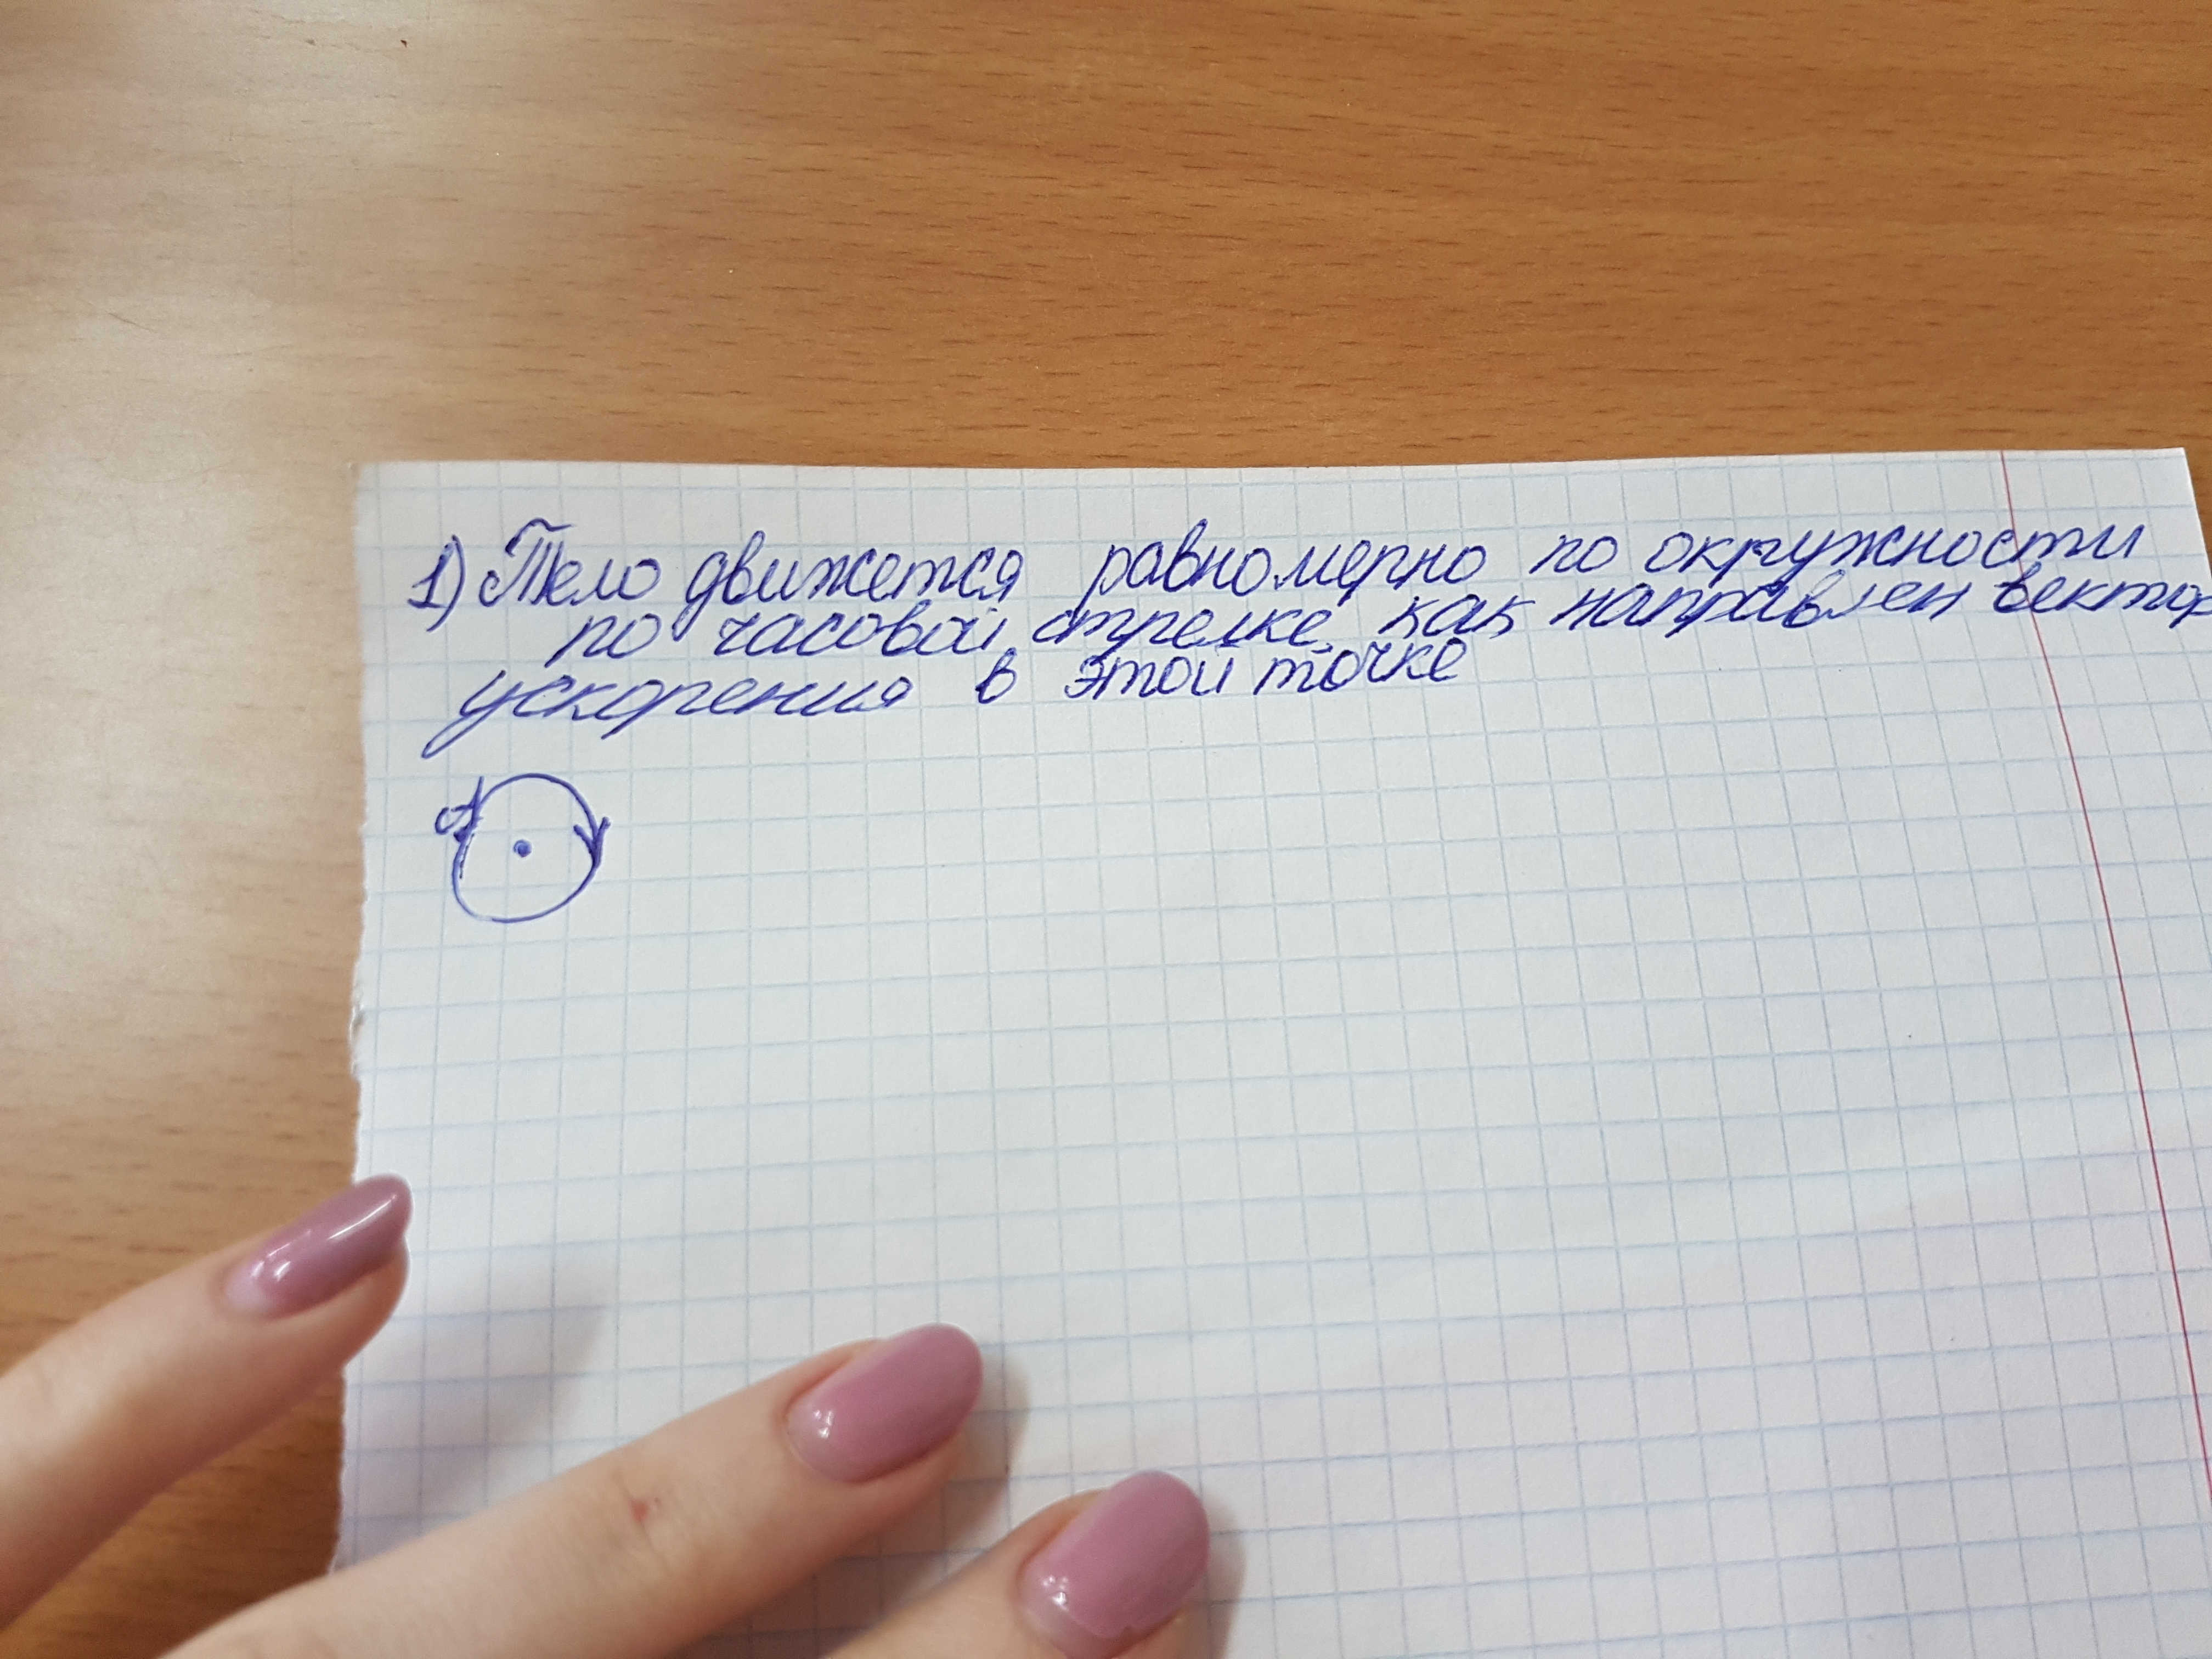 1) Тело движется равномерно по окружности
по часовой стрелке. как направлен вектор
ускорения в этой точке